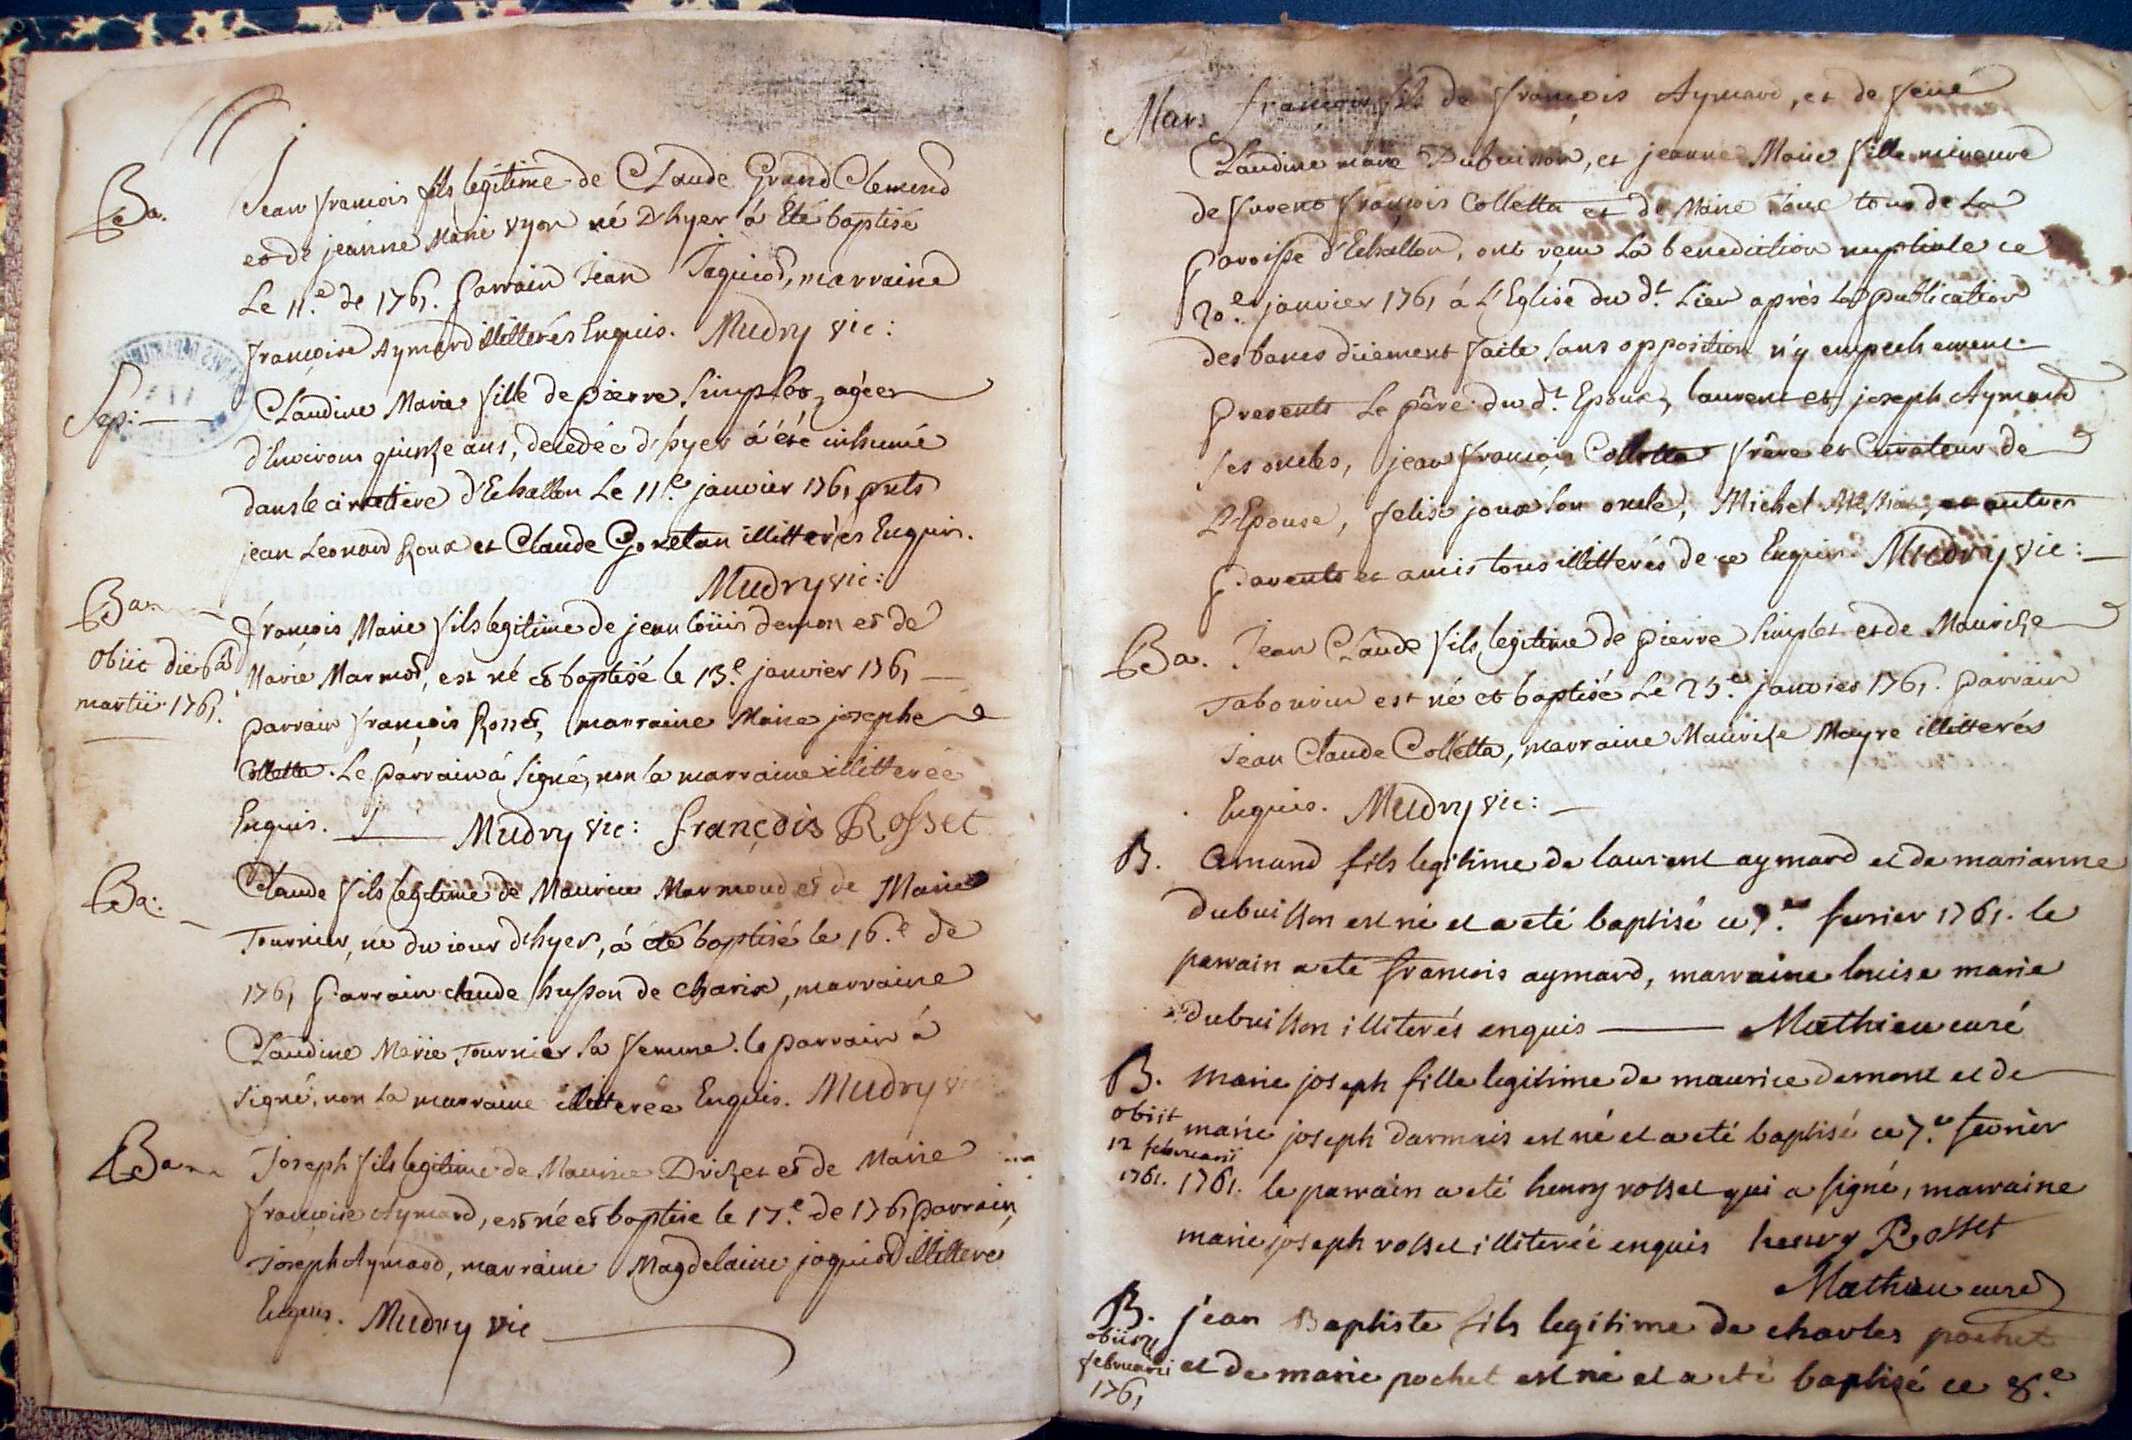 Ba.
Jean françois fils légitime de Claude Grand Clement
et de jeanne Marie vyon né D'hyer á Eté baptisé
Le 11.e de 1761. parrain Jean Jaquiod, marraine
françoise Aymard illitterés Enquis. Mudry vic:
Sep:
Claudine Marie fille de pierre Simplet, agée
d'Environs quinze ans, decedée d'hyer á été inhumé
dans le cimetiere d'Echallon Le 11.e janvier 1761 pnts
jean Leonard Roux et Claude Goretan illitterés Enquis.
Mudry vic:
Ba
obiit die 6a
martii 1761.
françois Marie fils legitime de jean loüis demon et de
Marie Marmod, est né et baptisé le 13.e janvier 1761
parrain françois Rosset, marraine Marie josephe
Colletta. Le parrain á signé, non la marraine illitterée
Enquis. Mudry vic: françois Rosset
Ba:
Claude fils legitime de Maurice Marmoud et de Marie
Tournier, né du iour d'hyer, á été baptisé le 16.e de
1761 parrain claude husson de charix, marraine
Claudine Marie Tournier sa femme. le parrain á
signé, non la marraine illitterée Enquis. Mudry vic
Ba
Joseph fils legitime de Maurice Driset et de Marie
françoise Aymard, est né et baptisé le 17.e de 1761 parrain
Joseph Aymard, marraine Magdelaine jaquiod illitteré
Enquis. Mudry vic
Mars françois fils de françois Aymard, et de feüe
Claudine marie Dubuisson, et jeanne Marie fille mineure
de furent françois Colletta et de Marie Joux tous de La
paroisse d'Echallon, ont reçu La benediction nuptiale ce
20.e janvier 1761 á L'Eglise du dt. Lieu aprés La publication
des bancs düement faite sans opposition n'y empechement
presents Le pêre du dt. Epoux, laurent et joseph Aymard
ses oncles, jean françois Colletta frêre et Curateur de
L'Epouse, felix joux son oncle, Michel et autres
parents et amis tous illitterés de ce Enquis. Mudry vic:
Ba.
Jean Claude fils legitime de pierre Simplet et de Maurize
Tabourin est né et baptisé Le 25.e janvier 1761. parrain
Jean Claude Colletta, marraine Maurize Mayre illitterés
Enquis. Mudry vic:
B. Amand fils legitime de laurent aymard et de marianne
dubuisson est né et a eté baptisé ce 7.e fevrier 1761. le
parrain a eté françois aymard, marraine louise marie
dubuisson illiterés enquis Mathieu curé
B. marie joseph fille legitime de maurice demont et de
obiit
12 februarii
1761.
marie joseph darmais est né et a eté baptisé ce 7.e fevrier
1761. le parrain a eté henry rosset qui a signé, marraine
marie joseph rosset illiterée enquis henry Rosset
Mathieu curé
B. jean Baptiste fils legitime de charles pochet
obiit
februarii
1761
et de marie pochet est né et a eté baptisé ce 8.e